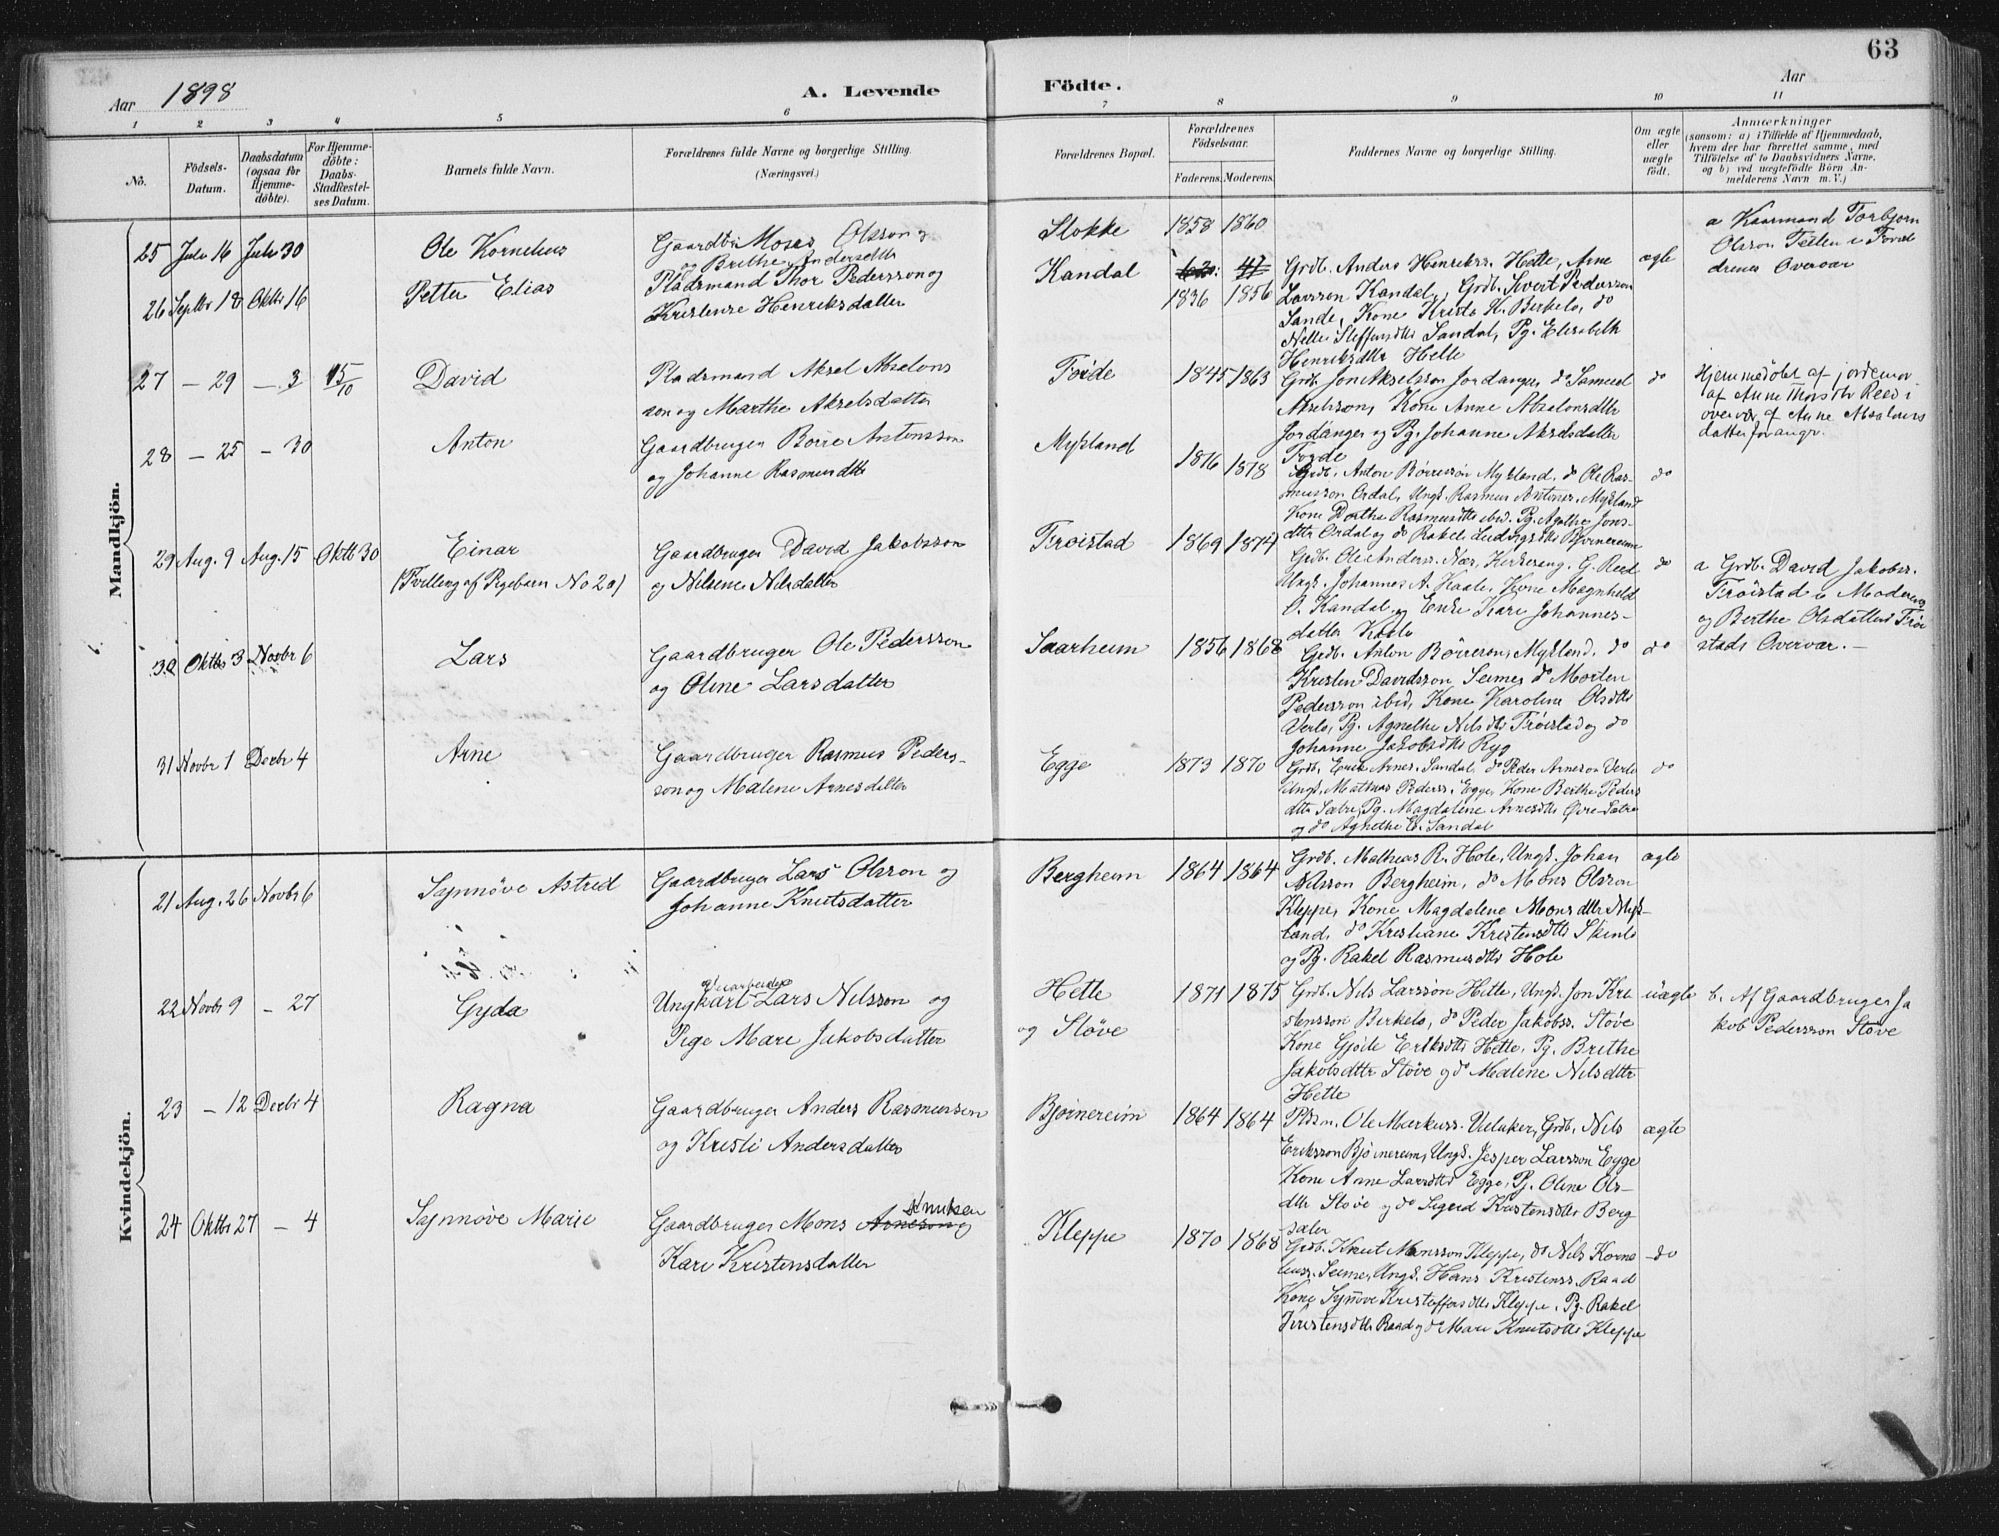 63
Aar 1898
A. Levende
Födte.
Aar
1 2 3 4 5 6 7 8 9 10 11
No.
Födsels-
Datum.
Daabsdatum
(ogsaa for
Hjemme-
döbte).
For Hjemme-
döbte:
Daabs-
Stadfæstel-
ses Datum.
Barnets fulde Navn.
Forældrenes fulde Navne og borgerlige Stilling.
(Næringsvei.)
Forældrenes Bopæl.
Forældrenes
Födselsaar.
Faderens. Moderens.
Faddernes Navne og borgerlige Stilling.
Om ægte
eller
uægte
født.
Anmærkninger
(saasom: a) i Tilfælde af Hjemmedaab,
hvem der har forrettet samme, med
Tilföielse af to Daabsvidners Navne,
og b) ved uægtefödte Börn An-
melderens Navn m. V.)
Mandkjön.
25 Juli 16 Juli 30
Ole Kornelius
Gaardbr. Moses Olsson og
og Brithe Andersdttr
Stokke
1858 1860
a Kaarmand Torbjørn
Olsson
Overvær
26 Septbr 18 Oktbr 16
Petter Elias
Pladsmand Thor Pedersson og
Kristense Henriksdatter
Kandal
1836 1856
Grdb. Anders Henrikss. Hette, Arne
Larsson Kandal, Grdb. Sivert Pedersson
Sande, Kone Kristi K. Berkelo, do
Nelle Steffensdttr Sandal, Pg. Elisabeth
Henriksdttr Hette
ægte
27 — 29 — 3 15/10
David
Pladsmand Aksel Absalons
son og Marthe Akselsdatter
Førde
1845 1863
Grdb. Jon Akselsson Jordanger, do Samuel
Akselsson, Kone Anne Absalonsdttr
Jordanger og Pg. Johanne Akselsdatter
Førde
do
Hjemmedøbt af jordemor
af Anne Thorsdtr Reed i
overvær af Anne
datter
28 — 25 — 30
Anton
Gaardbruger Børre Antonsson
og Johanne Rasmusdttr
Myklan​d
1876 1878
Grdb. Anton Børresson Mykland, do Ole Ras-
musson Ordal, Ungk. Rasmus Antons. Mykland
Kone Dorthe Rasmusdttr ibid. Pg. Agathe Jons-
dttr Ordal og do Rakel Ludvigsdttr Bjørnereim
do
29 Aug. 9 Aug. 15 Oktb 30
Einar
(Tvilling af Pigebarn No 20)
Gaardbruger David Jakobsson
og Nilsine Nilsdatter
Trøistad
1869 1874
Grdb. Ole Anderss. Nær, Kirkesang. G. Reed
Ungk. Johannes A. Kaale, Kone Magnhild
O. Kandal og Enke Kari Johannes-
datter Kaale
do
a Grdb. David Jakobss.
Trøistad i Moderens
og Berthe Olsdatter Trøi
stads Overvær. —
30 Oktbr 3 Novbr 6
Lars
Gaardbruger Ole Pedersson
og Oline Larsdatter
Saarheim
1856 1868
Grdb. Anton Børreson, Mykland, do
Kristen Davidsson Seime, do Morten
Pedersson ibid, Kone Karoline Olsdttr
Verlo, Pg. Agnethe Nilsdttr Trøistad og do
Johanne Jakobsdttr Ryg
do
31 Novbr 1 Decbr 4
Arne
Gaardbruger Rasmus Peders-
son og Malene Arnesdatter
Egge
1873 1870
Grdb. Erik Arnes. Sandal, do Peder Arneson Verlo
Ungk. Mathias Pederss. Egge, Kone Berthe Peders
dttr Sætre, Pg. Magdalene Arnesdttr Øvre-Sætre
og do Agnethe E. Sandal
do
Kvindekjön.
21 Aug. 26 Novbr 6
Synnöve Astrid
Gaardbruger Lars Olsson og
Johanne Knutsdatter
Bergheim
1864 1864
Grdb. Mathias R. Hole, Ungk. Johan
Nilsson Bergheim, do Mons Olsson
Kleppe, Kone Magdalene Monsdttr Myk-
land, do Kristiane Kristensdttr
og Pg. Rakel Rasmusdttr Hole
ægte
22 Novbr 9 — 27
Gyda
Veiarbeider
Ungkarl Lars Nilsson og
Pige Mari Jakobsdatter
Hette
og Støve
1871 1875
Grdb. Nils Larsson Hette, Ungk. Jon Kri
stensson Birkelo, do Peder Jakobss. Støve
Kone Gjøde Eriksdttr Hette, Pg. Brithe
Jakobsdttr Støve og do Malene Nilsdttr
Hette
uægte
b. Af Gaardbruger Ja
kob Pedersson Støve
23 — 12 Decbr 4
Ragna
Gaardbruger Anders Rasmussen
og Kristi Andersdatter
Bjørnereim
1864 1864
Pldsm. Ole Markuss. Grdb. Nils
Eriksson Bjørnereim, Ungk. Jesper Larsson Egge
Kone Anne Larsdttr Egge, Pg. Oline Ols-
dttr Støve og do Sigrid Kristensdttr Berg
sæter
ægte
24 Oktbr 27 — 4
Synnöve Marie
Knutsen
Gaardbruger Mons Arneson og
Kari Kristensdatter
Kleppe
1870 1868
Grdb. Knut Monsson Kleppe, do Nils Korne
liuss. Seime, Ungk. Hans Kristenss. Raad
Kone Synnøve Kristoffersdttr Kleppe, Pg. Rakel
Kristensdttr Raad og do Mari Knutsdttr Kleppe
do